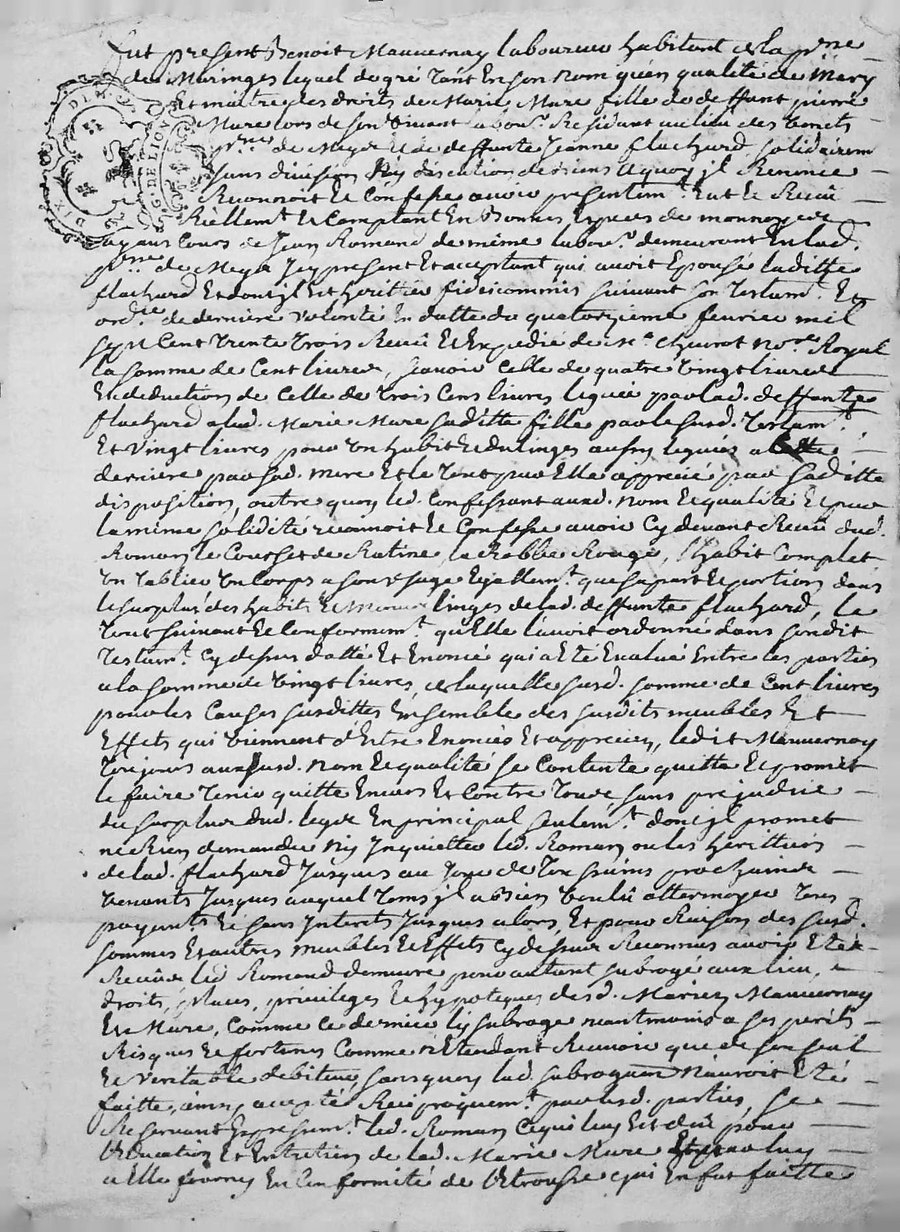 Fut present Benoit Mauvernay laboureur habitant de la p.sse
de Maringes lequel de gré tant En son nom qu'en qualité de Mary
Et maitre des droits de Marie Mure fille de deffunt pierre
Mure lors de son vivant labou.r Residant au lieu des
p.sse de Meys Et de deffunte Jeanne flachard solidairem
sans division Ny discution de biens a quoy jl Renonce
Reconnoit Et Confesse avoir presentem.t Eut Et Receü
Réellem.t Et Comptant En Bonnes Especes de monnoye
ayant Cours de Jean Romand de même labou.r demeurant En lad.
p.sse de Meys Jcy present Et acceptant qui avoit Epousé laditte
flachard Et dont jl Est heritier fideicommis suivant son Testam.t Et
ord.ce de derniere volonté En datte du quatorzieme fevrier mil
sept Cent Trente Trois Receü Et Expedié de M.e not.re Royal
la somme de Cent livres, scavoir Celle de quatre vingt livres
Et deduction de Celle de Trois Cens livres leguée par lad. deffunte
flachard a lad. Marie Mure saditte fille par le susd. Testam.t
Et vingt livres pour un habit Et du linges aussy legués a Cette
derniere par sad. mere Et le Tout par Elle apprecié par saditte
disposition, outre quoy led. Confessant aud. nom Et qualité Et par
la même solidité reconnoit Et Confesse avoir Cy devant Receü dud.
Romand le Corset de Ratine, la Robbe Rouge, l'habit Complet
un Tablier un Corps a son usage Egallem.t que sa part Et portion dans
le surplus des habits Et linges de lad. deffunte flachard, le
Tout suivant Et Conformem.t qu'Elle l'avoit ordonné dans sondit
Testam.t Cy dessus datté Et Enoncé qui a Eté Evalué Entre les parties
a la somme de vingt livres, de laquelle susd. somme de Cent livres
pour les Causes susdittes Ensemble des susdits meubles Et
Effets qui viennent d'Etre Enoncés Et appreciés, ledit Mauvernay
Toujours aux susd. nom Et qualité se Contente quitte Et promet
le faire Tenir quitte Envers Et Contre Tous sans prejudice
du surplus dud. legs En principal seulem.t dont jl promet
ne Rien demander Ny Jnquietter led. Romand ou les heritiers
de lad. flachard Jusques au Jour de Toussaints prochaine
venants Jusques auquel Tems jl a bien voulü attermoyer
payants Et sans Interets Jusques alors, Et pour Raison des susd.
sommes Et autres meubles Et Effets Cy dessus Reconnus avoir Eté
Receüs, led. Romand demeure pour autant subrogé aux lieu,
droits, places, privileges Et hypoteques desd. Mariez Mauvernay
Et Mure, Comme Ce dernier l'y subroge neantmoins a ses perils
Risques Et fortunes Comme n'Etendant Recevoir que de son seul
Et veritable debiteur, sans quoy lad. subrogaon n'auroit Eté
faitte, ainsy accepté Reciproquem.t par lesd. parties, se
Reservant Expressem.t led. Romand Ce qui luy Est dû pour
l'Education Et Entretien de lad. Marie Mure Et par luy
a Elle fourny En Conformité de l'Etrousse qui En fut faitte
DIX DEN
G. DE LION